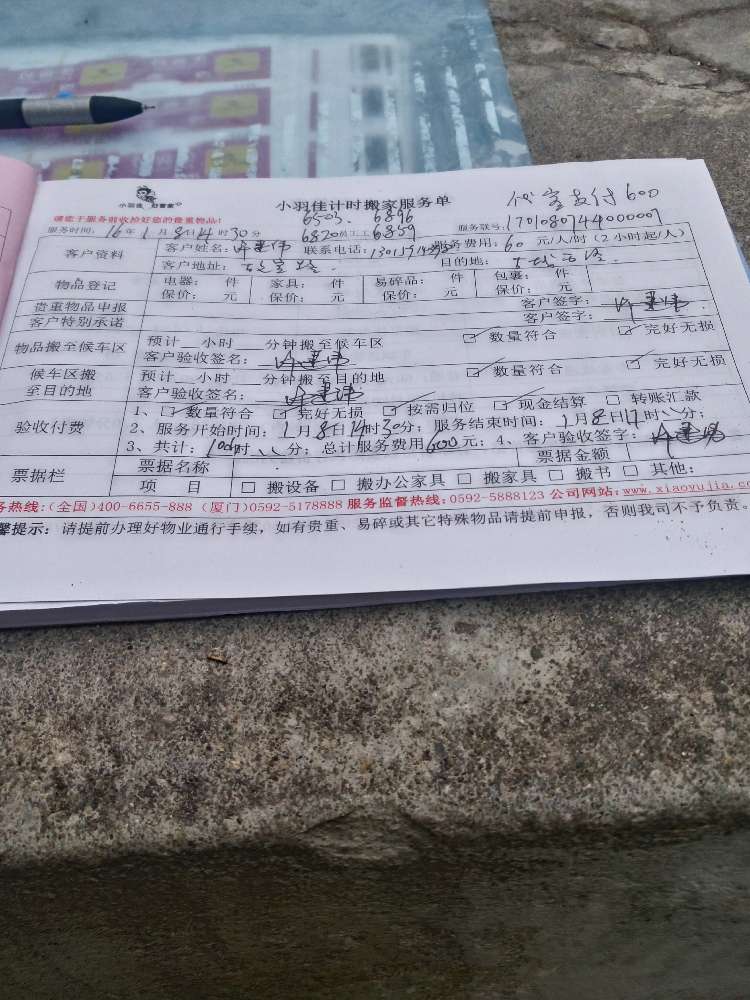 小羽佳 好管家
小羽佳计时搬家服务单
支付600
请您于服务前收拾好您的贵重物品!
6503 6896
服务时间: 16年1月8日14时30分 6820员工工 6859 服务联号:
客户资料 客户姓名: 联系电话: 服务费用: 60 元/人/时 (2小时起/人)
客户地址: 目的地:
物品登记 电器: 件 家具: 件 易碎品: 件 包裹: 件
保价: 元 保价: 元 保价: 元 保价: 元
贵重物品申报 客户签字:
客户特别承诺 客户签字:
物品搬至候车区 预计__小时 分钟搬至候车区 ☑ 数量符合 ☑ 完好无损
客户验收签名:
候车区搬至目的地 预计__小时 分钟搬至目的地 ☑ 数量符合 ☑ 完好无损
客户验收签名:
验收付费 1、☑ 数量符合 ☑ 完好无损 ☑ 按需归位 ☑ 现金结算 □ 转账汇款
2、服务开始时间: 1月8日14时30分; 服务结束时间: 1月8日17时 分;
3、共计: 时 分; 总计服务费用600元; 4、客户验收签字:
票据栏 票据名称 票据金额
项 目 □ 搬设备 □ 搬办公家具 □ 搬家具 □ 搬书 □ 其他:
务热线: (全国)400-6655-888 (厦门)0592-5178888 服务监督热线: 0592-5888123 公司网站: www.xiaoyujia.co
馨提示: 请提前办理好物业通行手续, 如有贵重、易碎或其它特殊物品请提前申报, 否则我司不予负责。